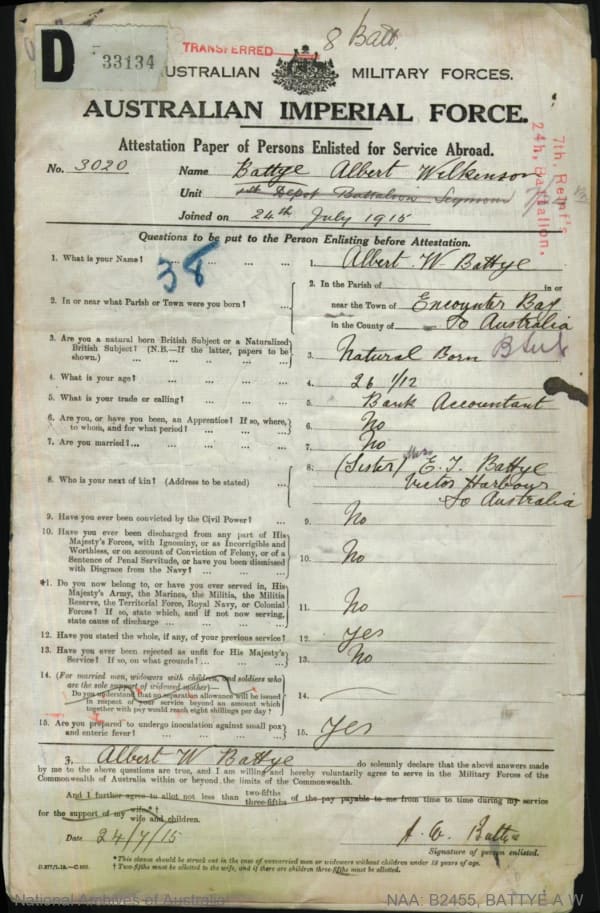 D
33134
TRANSFERRED
8 Batt.
AUSTRALIAN MILITARY FORCES.
AUSTRALIAN IMPERIAL FORCE.
Attestation Paper of Persons Enlisted for Service Abroad.
7th, Reinf's
24h, Battalion.
No. 3020 Name Battye Albert Wilkinson
Unit Depot Battalion Seymour
Joined on 24th July 1915
Questions to be put to the Person Enlisting before Attestation.
38
1. What is your Name? ... ... ... 1. Albert W Battye
2. In or near what Parish or Town were you born? ...
2. In the Parish of in or
near the Town of Encounter Bay
in the County of So Australia
3. Are you a natural born British Subject or a Naturalized
British Subject? (N.B.—If the latter, papers to be
shown.) ... ... ... ... 3. Natural Born
4. What is your age? ... ... ... ... 4. 26 1/12
5. What is your trade or calling? ... ... ... 5. Bank Accountant
6. Are you, or have you been, an Apprentice? If so, where,
to whom, and for what period? ... ... ... 6. No
7. Are you married? ... ... ... ... 7. No
8. Who is your next of kin? (Address to be stated) ...
8. (Sister) Mrs E. J. Battye
Victor Harbour
So Australia
9. Have you ever been convicted by the Civil Power? ... 9. No
10. Have you ever been discharged from any part of His
Majesty's Forces, with Ignominy, or as Incorrigible and
Worthless, or on account of Conviction of Felony, or of a
Sentence of Penal Servitude, or have you been dismissed
with Disgrace from the Navy? ... ... ... 10. No
*11. Do you now belong to, or have you ever served in, His
Majesty's Army, the Marines, the Militia, the Militia
Reserve, the Territorial Force, Royal Navy, or Colonial
Forces? If so, state which, and if not now serving,
state cause of discharge ... ... ... 11. No
12. Have you stated the whole, if any, of your previous service? 12. Yes
13. Have you ever been rejected as unfit for His Majesty's
Service? If so, on what grounds? ... ... ... 13. No
14. (For married men, widowers with children, and soldiers who
are the sole support of widowed mother)—
Do you understand that no separation allowance will be issued
in respect of your service beyond an amount which
together with pay would reach eight shillings per day? 14.
15. Are you prepared to undergo inoculation against small pox
and enteric fever? ... ... ... ... 15. Yes
I, Albert W Battye do solemnly declare that the above answers made
by me to the above questions are true, and I am willing and hereby voluntarily agree to serve in the Military Forces of the
Commonwealth of Australia within or beyond the limits of the Commonwealth.
And I further agree to allot not less than two-fifths three-fifths of the pay payable to me from time to time during my service
for the support of my wife*† wife and children.
Date 24/7/15 A. W. Battye
Signature of person enlisted.
* This clause should be struck out in the case of unmarried men or widowers without children under 18 years of age.
† Two-fifths must be allotted to the wife, and if there are children three-fifths must be allotted.
National Archives of Australia NAA: B2455, BATTYE A W